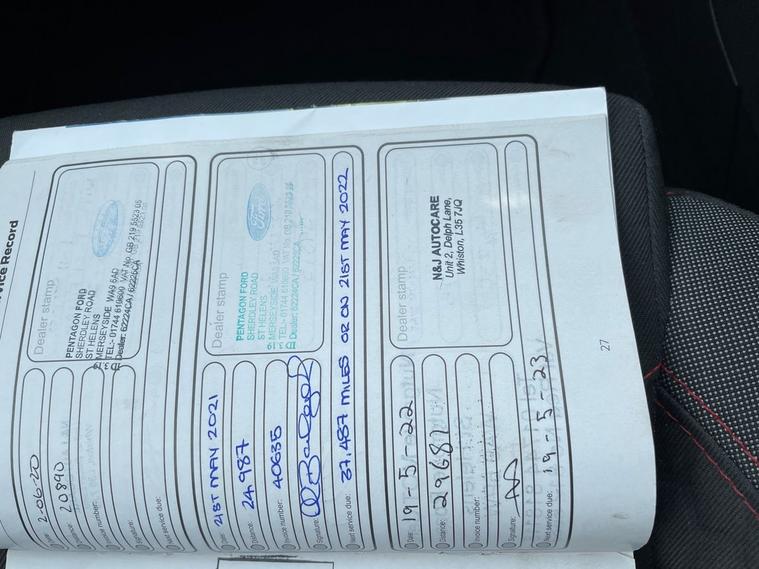 vice Record
Dealer stamp
PENTAGON FORD
SHERDLEY ROAD
ST HELENS
MERSEYSIDE WA9 5AD
TEL- 01744 619690 VAT No. GB 219 5523 05
Dealer: 62224CA / 62226CA
Date: 2-06-20
Distance: 20890
Invoice number:
Signature:
Next service due:
Dealer stamp
Ford
PENTAGON FORD
SHERDLEY ROAD
ST HELENS
MERSEYSIDE WA9 5AD
TEL- 01744 619690 VAT No. GB 219 5523 05
Dealer: 62224CA / 62226CA
Date: 21ST MAY 2021
Distance: 24,987
Invoice number: 40635
Signature:
Next service due: 37,487 MILES OR ON 21ST MAY 2022
Dealer stamp
N&J AUTOCARE
Unit 2, Delph Lane,
Whiston, L35 7JQ
Date: 19-5-22
Distance: 29687
Invoice number:
Signature:
Next service due: 19-5-23
27